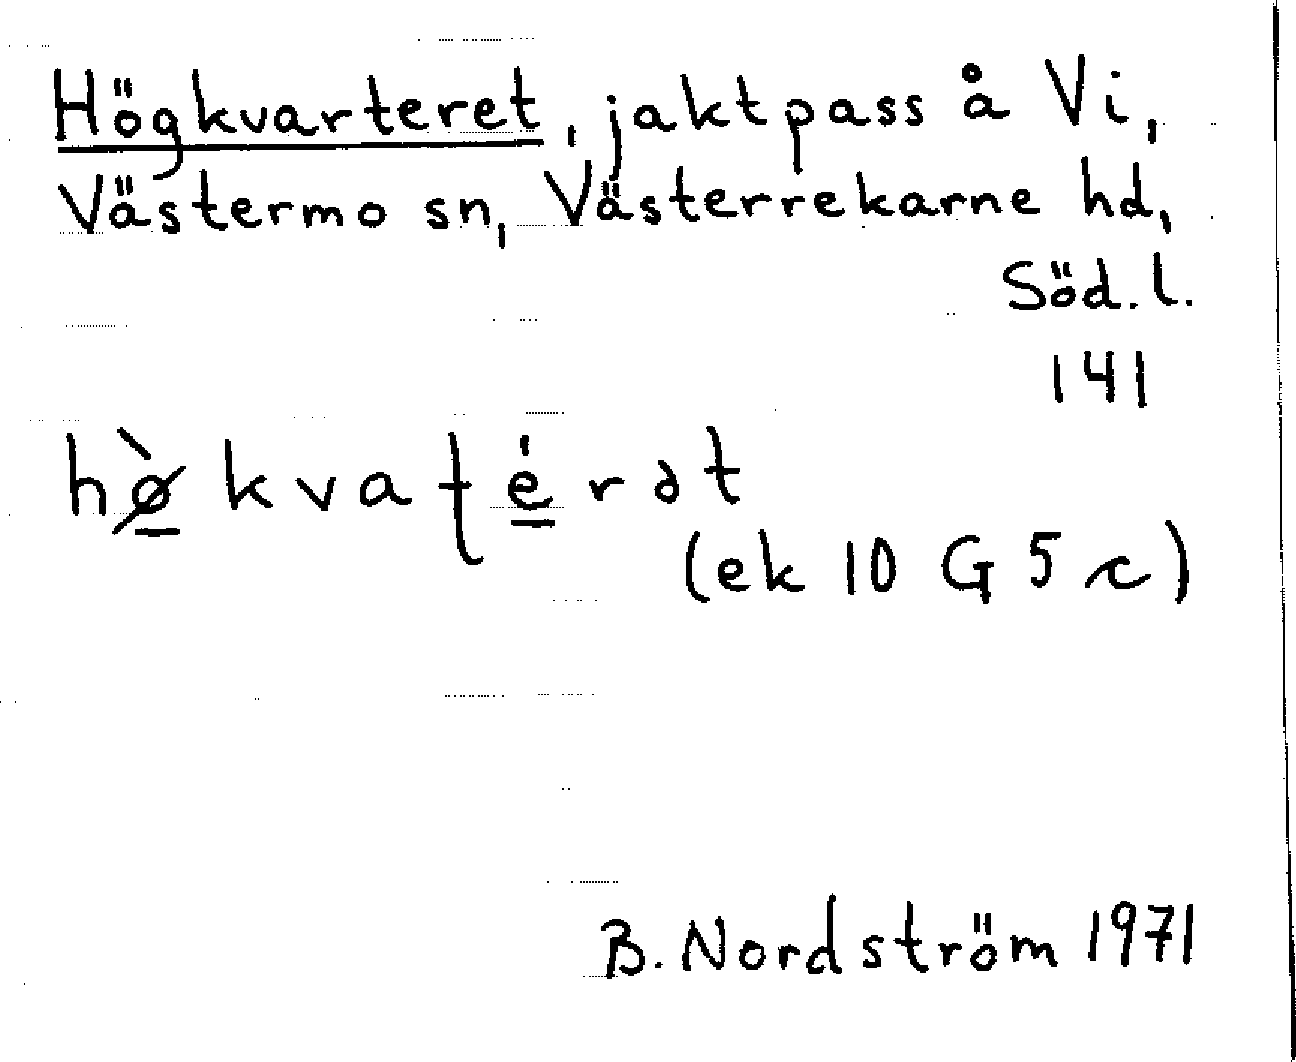 Högkvarteret, jaktpass å Vi,
Västermo sn, Västerrekarne hd,
Söd. l.
141
hø̱̀kvaʈé̱rət
(ek 10 G 5 c)
B. Nordström 1971